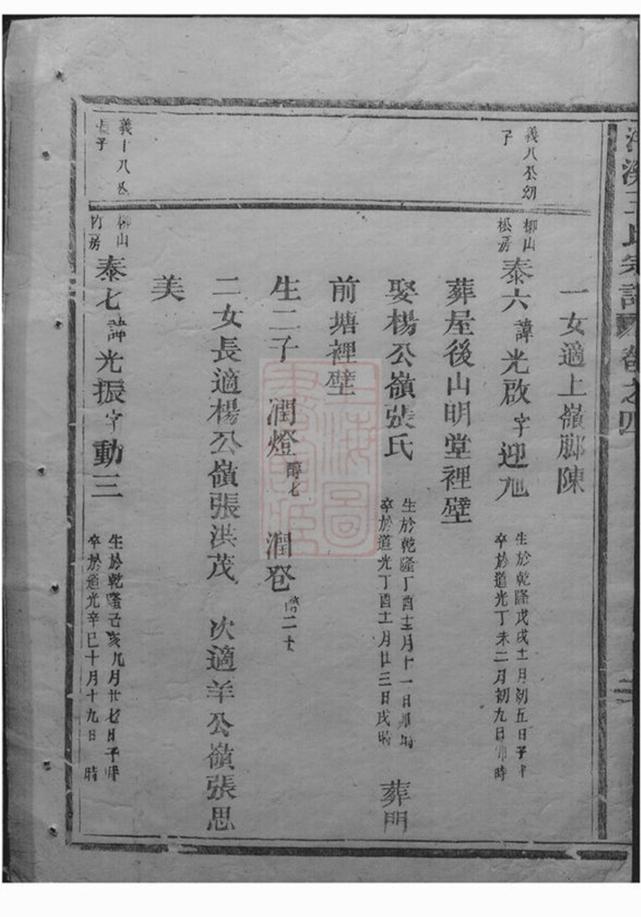 王氏宗譜 卷之四
一女適上嶺腳陳
義八公幼
子
柳山
松房
泰六 諱光啟 字迎旭
生於乾隆戊戌十一月初五日子時
卒於道光丁未二月初九日卯時
葬屋後山明堂裡壁
娶楊公嶺張氏
生於乾隆丁酉十二月十一日
卒於道光丁酉十一月廿三日戌時
葬門
前塘裡壁
生二子 潤燈 潤發
二女長適楊公嶺張洪茂 次適羊公嶺張思
美
義十八公
長子
柳山
竹房
泰七 諱光振 字動三
生於乾隆己亥九月廿七日子時
卒於道光辛巳十月十九日 時